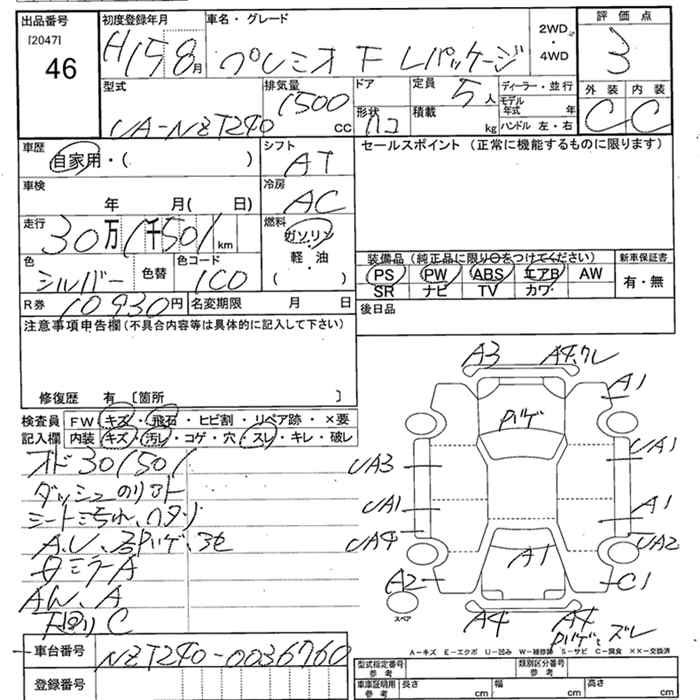 出品番号
[2047]
46
初度登録年月
H15 8月
車名・グレード
プレミオ F Lパッケージ
2WD・4WD
評価点
3
型式
UA-NZT240
排気量
1500 cc
ドア
形状
ハコ
定員
5人
積載
kg
ディーラー・並行
モデル年式 年
ハンドル 左・右
外装 内装
C C
車歴
自家用・( )
シフト
AT
セールスポイント (正常に機能するものに限ります)
車検
年 月( 日)
冷房
AC
走行
30万1千501km
燃料
ガソリン・軽・油
( )
色
シルバー
色替
色コード
1C0
装備品 (純正品に限り○をつけてください)
PS PW ABS エアB AW
SR ナビ TV カワ・
新車保証書
有・無
R券 10930円
名変期限 月 日
後日品
注意事項申告欄 (不具合内容等は具体的に記入して下さい)
修復歴 有 [箇所 ]
検査員記入欄
FW・キズ・飛石・ヒビ割・リペア跡・×要
内装・キズ・汚レ・コゲ・穴・スレ・キレ・破レ
オド301501
ダッシュのリアト
A
下回り C
車台番号 NZT240-0036760
登録番号
A3
A4.ワレ
A1
ハゲ
UA3
UA1
UA1
A1
UA4
UA2
A1
A2
C1
スペア
A4
A4
ハゲ ズレ
A-キズ E-エクボ U-凹み W-補修跡 S-サビ C-腐食 ××-交換済
型式指定番号 参考
類別区分番号 参考
車庫証明用 参考
長さ cm
幅 cm
高さ cm